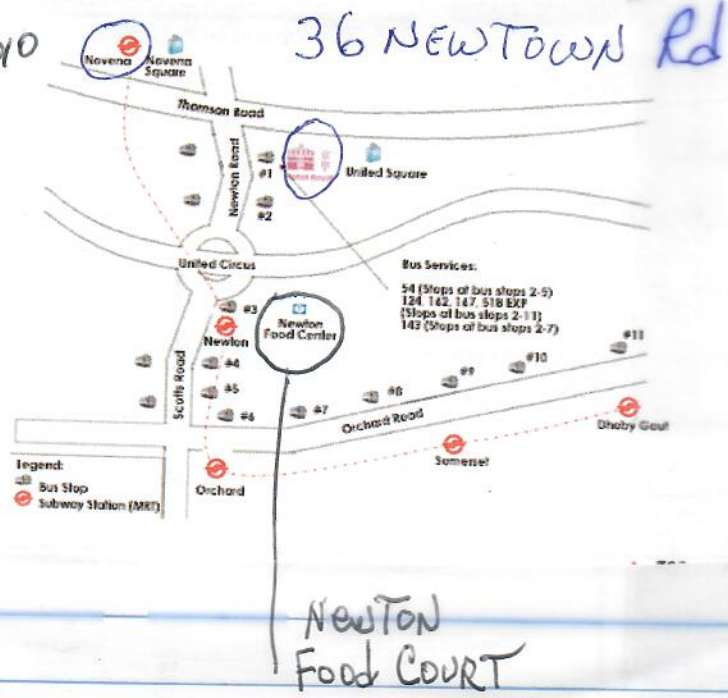 36 NEWTOWN Rd
Novena
Novena
Square
Thomson Road
Newton Road
#1
United Square
#2
United Circus
Bus Services:
54 (Stops at bus stops 2-5)
124, 162, 167, 518 EXP
(Stops at bus stops 2-11)
143 (Stops at bus stops 2-7)
#3
Newton
Newton
Food Center
#4
#5
#6
#7
#8
#9
#10
#11
Scotts Road
Orchard Road
Dhoby Gaut
Somerset
Orchard
Legend:
Bus Stop
Subway Station (MRT)
NEWTON
Food COURT